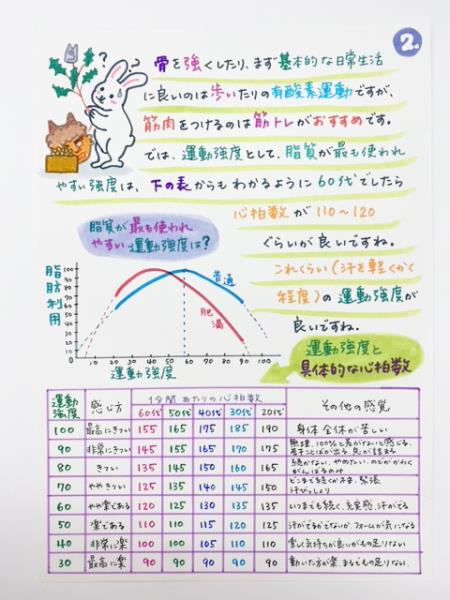 2.
? ?
骨を強くしたり、まず基本的な日常生活
に良いのは歩いたりの有酸素運動ですが、
筋肉をつけるのは筋トレがおすすめです。
では、運動強度として、脂質が最も使われ
やすい強度は、下の表からもわかるように60代でしたら
心拍数が110〜120
ぐらいが良いですね。
これくらい(汗を軽くかく
程度)の運動強度が
良いですね。
脂質が最も使われ
やすい運動強度は?
脂肪利用
100
90
80
70
60
50
40
30
20
10
普通
肥満
0 10 20 30 40 50 60 70 80 90 100
運動強度
運動強度と
具体的な心拍数
運動強度 感じ方 1分間あたりの心拍数 その他の感覚
60代 50代 40代 30代 20代
100 最高にきつい 155 165 175 185 190 身体全体が苦しい
90 非常にきつい 145 155 165 170 175 無理、100%と差がないと感じる、
息が詰まる
80 きつい 135 145 150 160 165 続かない、やめたい、のどがかわく
がんばるのみ
70 ややきつい 125 135 140 145 150 どこまで続くか不安、緊張
汗びっしょり
60 やや楽である 120 125 130 135 135 いつまでも続く、充実感、汗がでる
50 楽である 110 110 115 120 125 汗がでるかでないか、フォームが気になる
40 非常に楽 100 100 105 110 110 楽しく気持ちが良いがもの足りない
30 最高に楽 90 90 90 90 90 動いた方が楽、まるでもの足りない